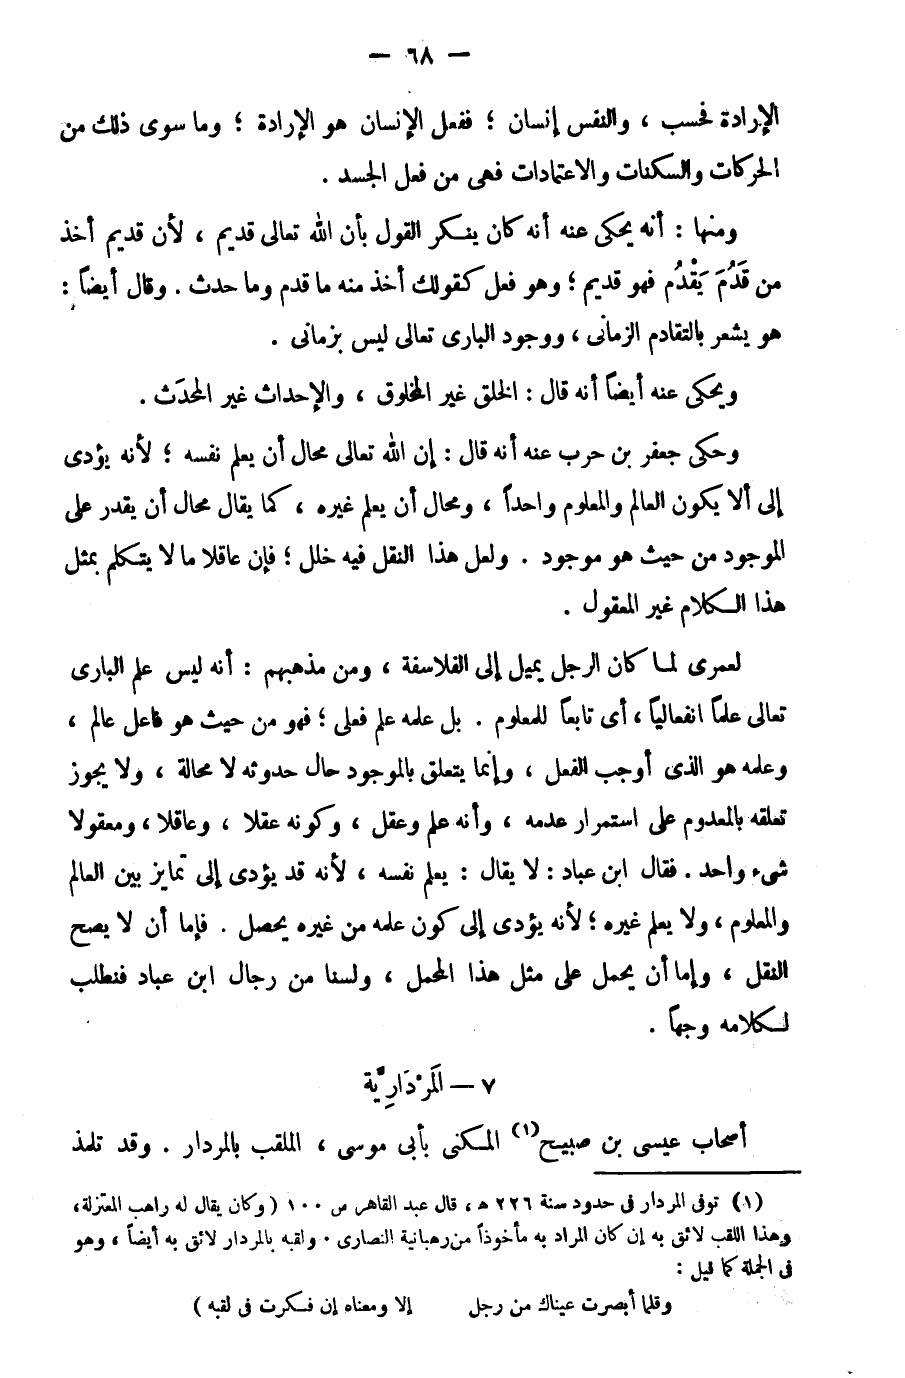 — ٦٨ —
الإرادة فحسب ، والنفس إنسان ؛ ففعل الإنسان هو الإرادة ؛ وما سوى ذلك من
الحركات والسكنات والاعتمادات فهى من فعل الجسد .
ومنها : أنه يحكى عنه أنه كان ينكر القول بأن الله تعالى قديم ، لأن قديم أخذ
من قَدُمَ يَقْدُم فهو قديم ؛ وهو فعل كقولك أخذ منه ما قدم وما حدث . وقال أيضاً :
هو يشعر بالتقادم الزمانى ، ووجود البارى تعالى ليس بزمانى .
ويحكى عنه أيضاً أنه قال : الخلق غير المخلوق ، والإحداث غير المحدَث .
وحكى جعفر بن حرب عنه أنه قال : إن الله تعالى محال أن يعلم نفسه ؛ لأنه يؤدى
إلى ألا يكون العالم والمعلوم واحداً ، ومحال أن يعلم غيره ، كما يقال محال أن يقدر على
الموجود من حيث هو موجود . ولعل هذا النقل فيه خلل ؛ فإن عاقلا ما لا يتكلم بمثل
هذا الكلام غير المعقول .
لعمرى لما كان الرجل يميل إلى الفلاسفة ، ومن مذهبهم : أنه ليس علم البارى
تعالى علماً انفعالياً ، أى تابعاً للمعلوم . بل علمه علم فعلى ؛ فهو من حيث هو فاعل عالم ،
وعلمه هو الذى أوجب الفعل ، وإنما يتعلق بالموجود حال حدوثه لا محالة ، ولا يجوز
تعلقه بالمعدوم على استمرار عدمه ، وأنه علم وعقل ، وكونه عقلا ، وعاقلا ، ومعقولا
شىء واحد . فقال ابن عباد : لا يقال : يعلم نفسه ، لأنه قد يؤدى إلى تمايز بين العالم
والمعلوم ، ولا يعلم غيره ؛ لأنه يؤدى إلى كون علمه من غيره يحصل . فإما أن لا يصح
النقل ، وإما أن يحمل على مثل هذا المحمل ، ولسنا من رجال ابن عباد فنطلب
لكلامه وجهاً .
٧ — المَرْدَارِيَّة
أصحاب عيسى بن صبيح(١) المكنى بأبى موسى ، الملقب بالمردار . وقد تلمذ
(١) توفى المردار فى حدود سنة ٢٢٦ هـ ، قال عبد القاهر ص ١٠٠ ( وكان يقال له راهب المعتزلة ،
وهذا اللقب لائق به إن كان المراد به مأخوذاً من رهبانية النصارى . ولقبه بالمردار لائق به أيضاً ، وهو
فى الجملة كما قيل :
وقلما أبصرت عيناك من رجل إلا ومعناه إن فكرت فى لقبه )